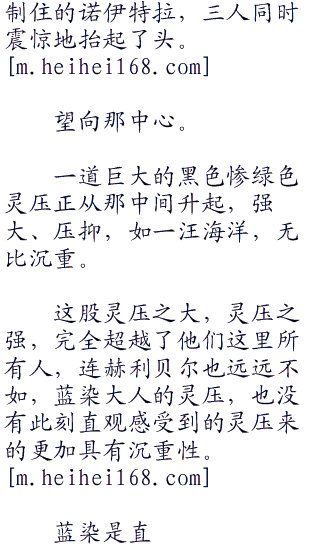 制住的诺伊特拉，三人同时
震惊地抬起了头。
[m.heihei168.com]
望向那中心。
一道巨大的黑色惨绿色
灵压正从那中间升起，强
大、压抑，如一汪海洋，无
比沉重。
这股灵压之大，灵压之
强，完全超越了他们这里所
有人，连赫利贝尔也远远不
如，蓝染大人的灵压，也没
有此刻直观感受到的灵压来
的更加具有沉重性。
[m.heihei168.com]
蓝染是直